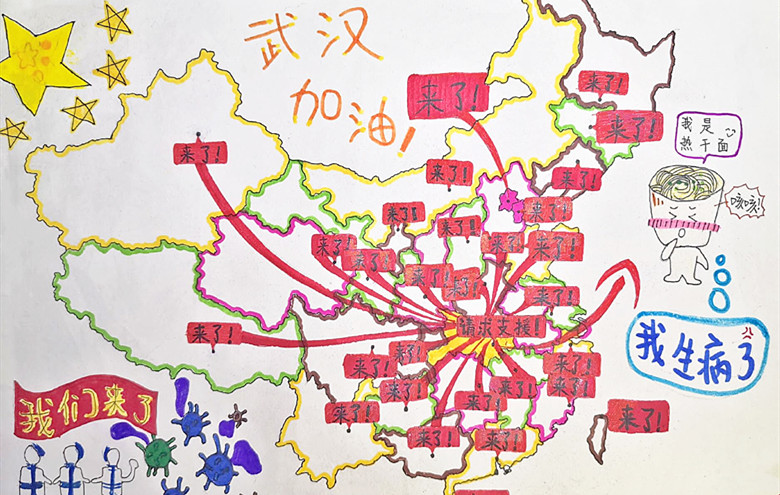 武汉
加油!
来了!
来了!
来了!
我是
热干面
来了!
来了!
来了!
咳咳!
来了!
来了!
来了!
来了!
来了!
来了!
来了!
来了!
来了!
来了!
请求支援!
来了!
我生病了
来了!
来了!
来了!
来了!
来了!
来了!
我们来了
来了!
来了!
来了!
来了!
来了!